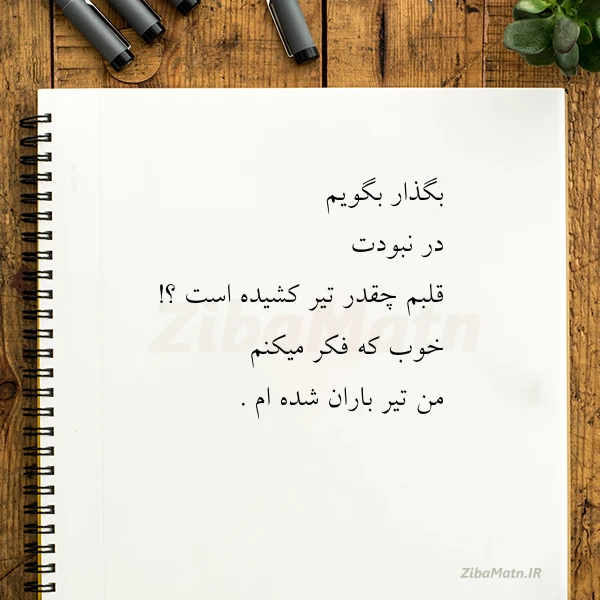 بگذار بگویم
در نبودت
قلبم چقدر تیر کشیده است ؟!
خوب که فکر میکنم
من تیر باران شده ام .
ZibaMatn
ZibaMatn.IR